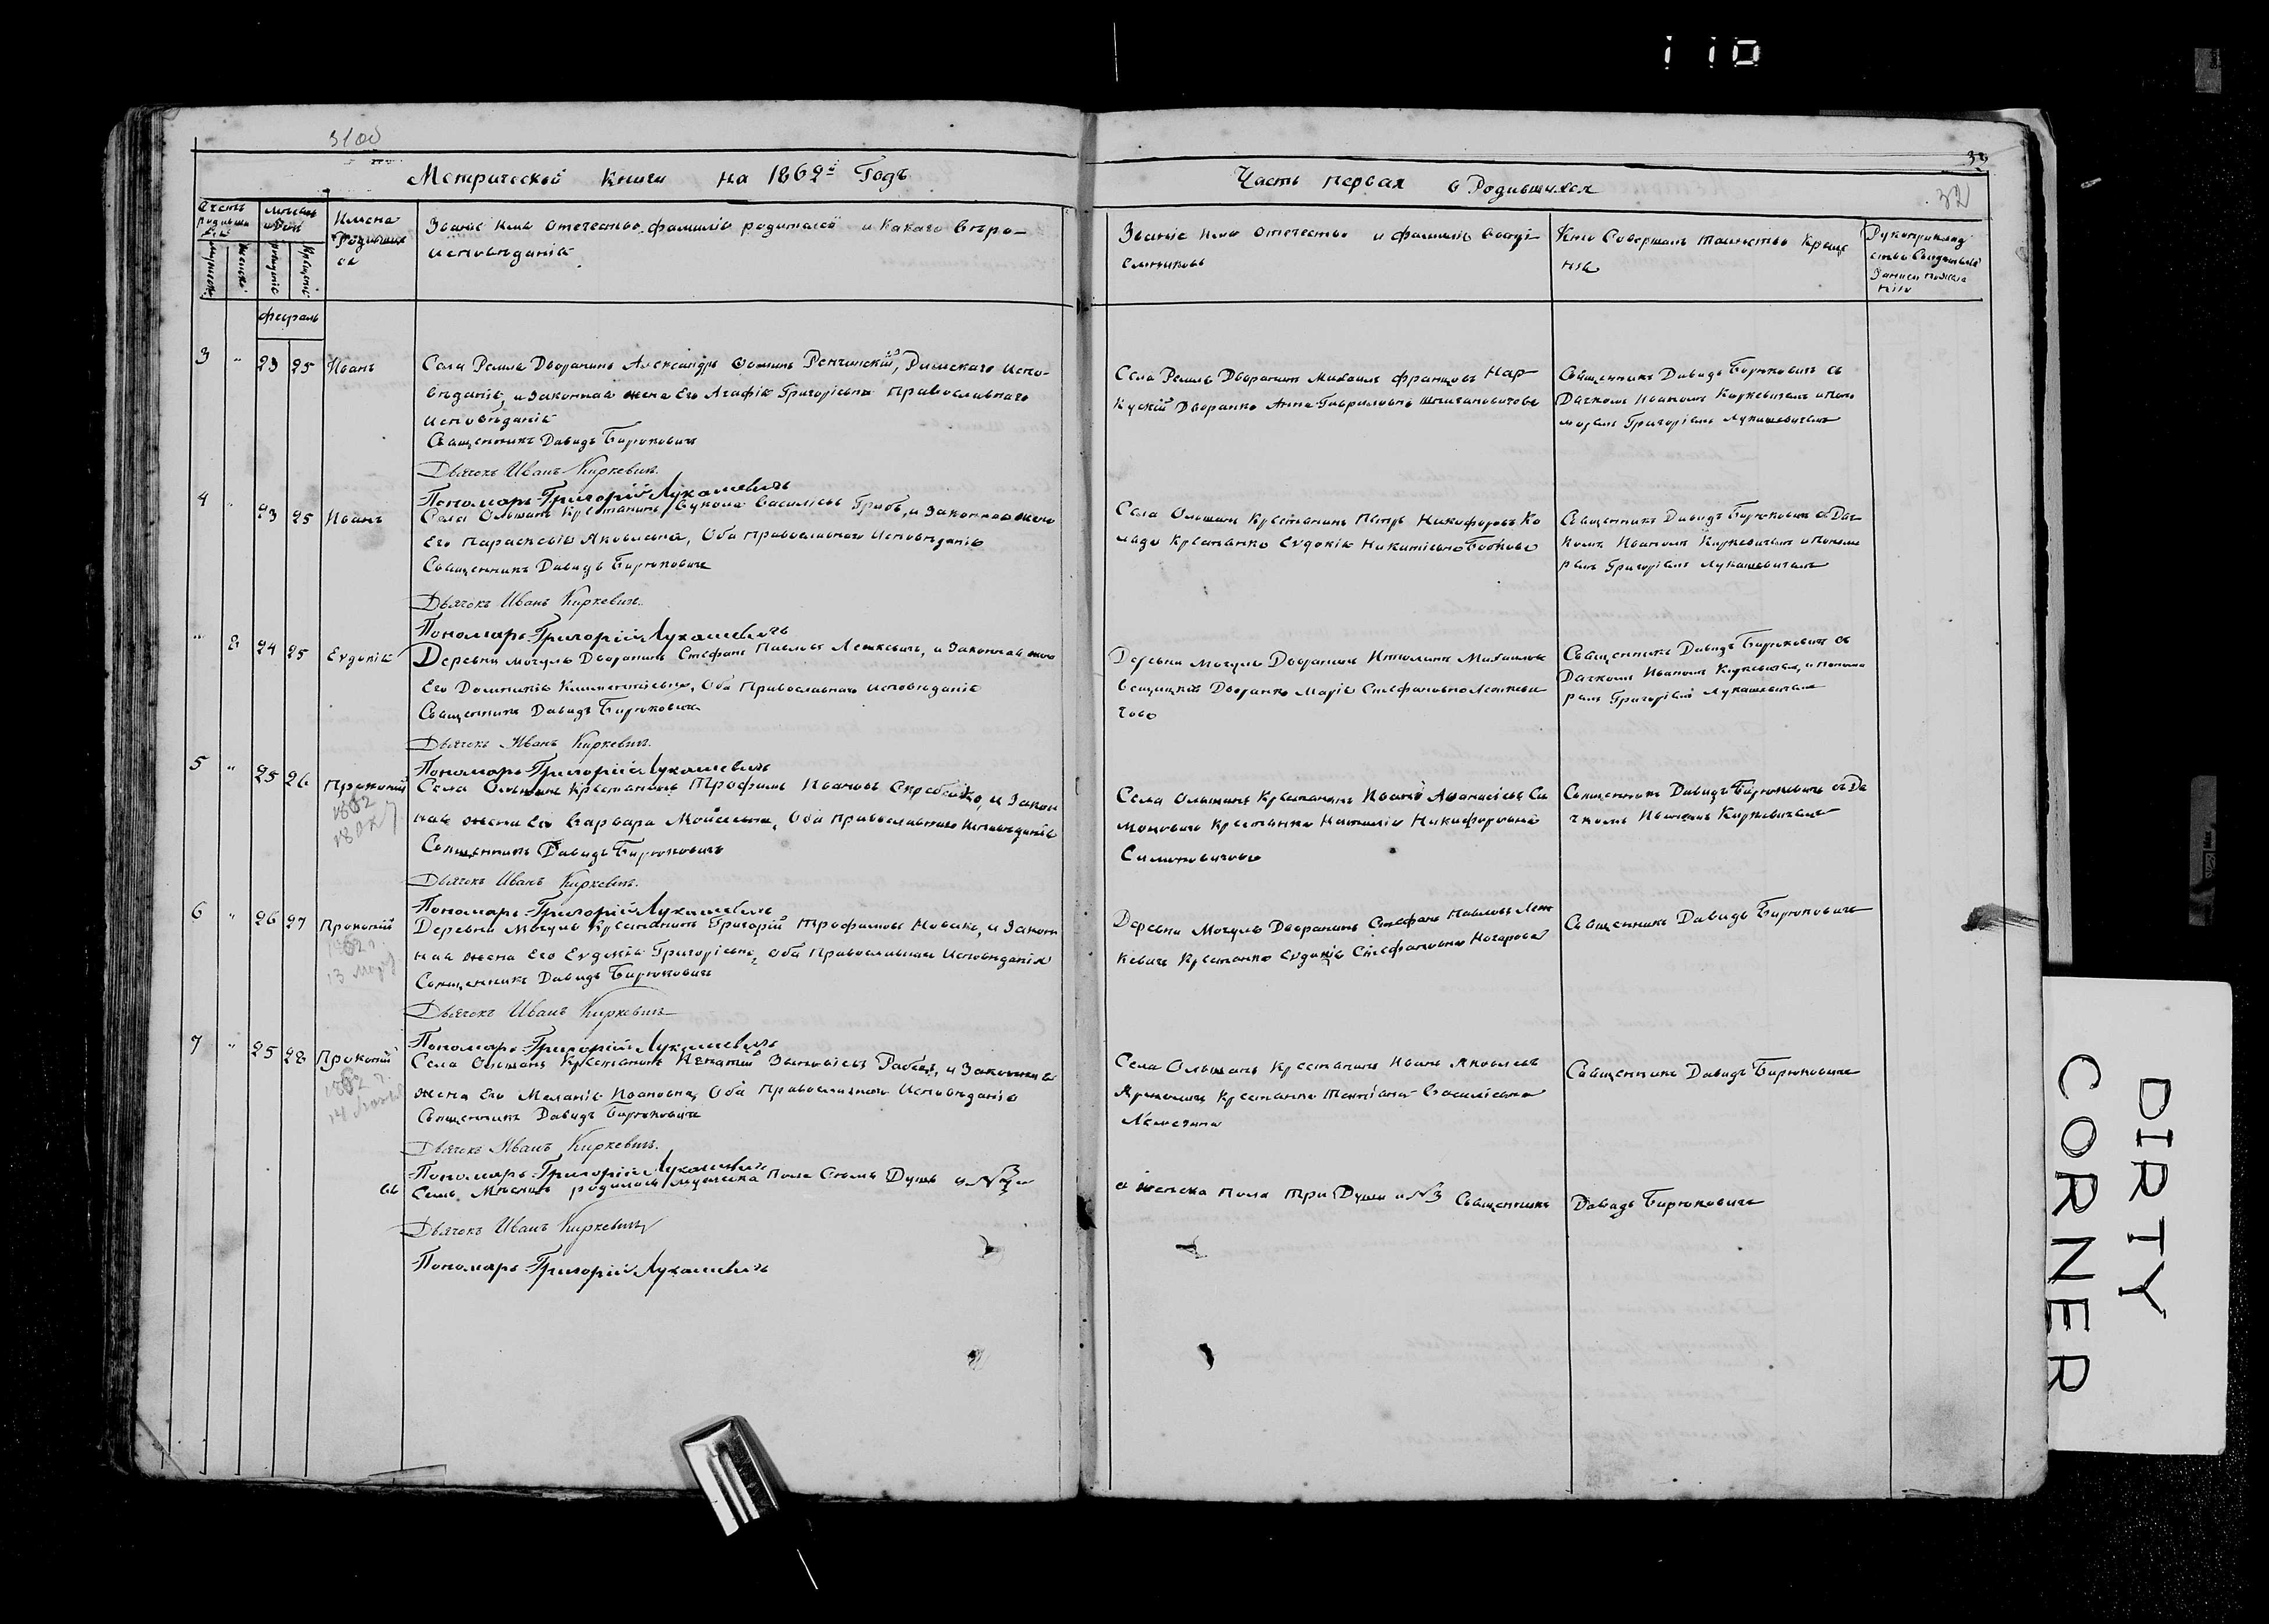 110
3100
32
32
Метрической Книги на 1862й Годъ
Часть первая о Родившихся
Счетъ родивших
ся
Мужеска
Женска
Месяцъ и День
рожденiя
Крещенiя
Имена
Родивших
ся
Званiе Имя Отечество, фамилiя родителей и Какаго Веро-
исповеданiя
Званiе Имя Отечество и фамилiя Воспрi-
емниковъ
Кто Совершалъ таинство Креще
нiя
Рукоприклад
ство Свидетелей
Записи по жела
нiю
февраль
3 " 23 25 Иванъ
Села Ремля Дворянинъ Александръ Римскаго Испо-
веданiя, и Законная жена Его Агафiя Григорiевна Православнаго
Исповеданiя
Священникъ Давидъ Бирюковичъ
Дьячокъ Иванъ Киркевичъ.
Пономарь Григорiй Лукашевичъ
Села Ремля Дворянинъ Михаилъ Францовъ Нар-
Дворянка Анна Гавриловна
Священникъ Давидъ Бирюковичъ съ
Дячкомъ Иваномъ Киркевичемъ и Поно
маремъ Григорiемъ Лукашевичемъ
4 " 23 25 Иванъ
Села Ольшанъ Крестьянинъ Василiевъ Грибъ, и Законная жена
Его Параскевiя Яковлевна, Оба православнаго Исповеданiя
Священникъ Давидъ Бирюковичъ
Дьячокъ Иванъ Киркевичъ.
Пономарь Григорiй Лукашевичъ
Села Ольшанъ Крестянинъ Петръ Никифоровъ Ко
ляда Крестянка Евдокiя Никитiевна
Священникъ Давидъ Бирюковичъ съ Дяч
комъ Иваномъ Киркевичемъ и Понома
ремъ Григорiемъ Лукашевичемъ
" 2 24 25 Евдокiя
Деревни Могуль Дворянинъ Стефанъ Павловъ Лешкевичъ, и Законная жена
Его Домникiя Климентiевна, Оба Православнаго Исповеданiя
Священникъ Давидъ Бирюковичъ
Дьячокъ Иванъ Киркевичъ.
Пономарь Григорiй Лукашевичъ
Деревни Могуль Дворянинъ Михаиловъ
Дворянка Марiя Стефановна Лешкеви
чова
Священникъ Давидъ Бирюковичъ съ
Дячкомъ Иваномъ Киркевичемъ, и понома
ремъ Григорiемъ Лукашевичемъ
5 " 25 26 Прокопiй
1862
Села Ольшанъ Крестянинъ Трофимъ Ивановъ и Закон
ная жена Его Варвара Мойсеевна, Оба православнаго Исповеданiя
Священникъ Давидъ Бирюковичъ
Дьячокъ Иванъ Киркевичъ.
Пономарь Григорiй Лукашевичъ
Села Ольшанъ Крестянинъ Иванъ Афанасiевъ Си
моновичъ Крестянка Наталiя Никифоровна
Симоновичова
Священникъ Давидъ Бирюковичъ съ Дя
чкомъ Иваномъ Киркевичемъ
6 " 26 27 Прокопiй
Деревни Могуль Крестянинъ Григорiй Трофимовъ Новикъ, и Закон
ная жена Его Евдокiя Григорiевна, Оба Православнаго Исповеданiя
Священникъ Давидъ Бирюковичъ
Дьячокъ Иванъ Киркевичъ
Пономарь Григорiй Лукашевичъ
Деревни Могуль Дворянинъ Стефанъ Павловъ Леш
кевичъ Крестянка Евдокiя Стефановна
Священникъ Давидъ Бирюковичъ
7 " 25 28 Прокопiй
1862 г.
Села Ольшанъ Крестянинъ Игнатiй и Законная
жена Его Меланiя Ивановна, Оба Православнаго Исповеданiя
Священникъ Давидъ Бирюковичъ
Дьячокъ Иванъ Киркевичъ.
Пономарь Григорiй Лукашевичъ
Села Ольшанъ Крестянинъ Иванъ Яковлевъ
Крестянка Татiана Василiевна
Священникъ Давидъ Бирюковичъ
Въ Семъ Месяце родилось мужеска Пола Семъ Душъ
а женска пола три Души и №3 Священникъ Давидъ Бирюковичъ
Дьячокъ Иванъ Киркевичъ
Пономарь Григорiй Лукашевичъ
DIRTY
CORNER